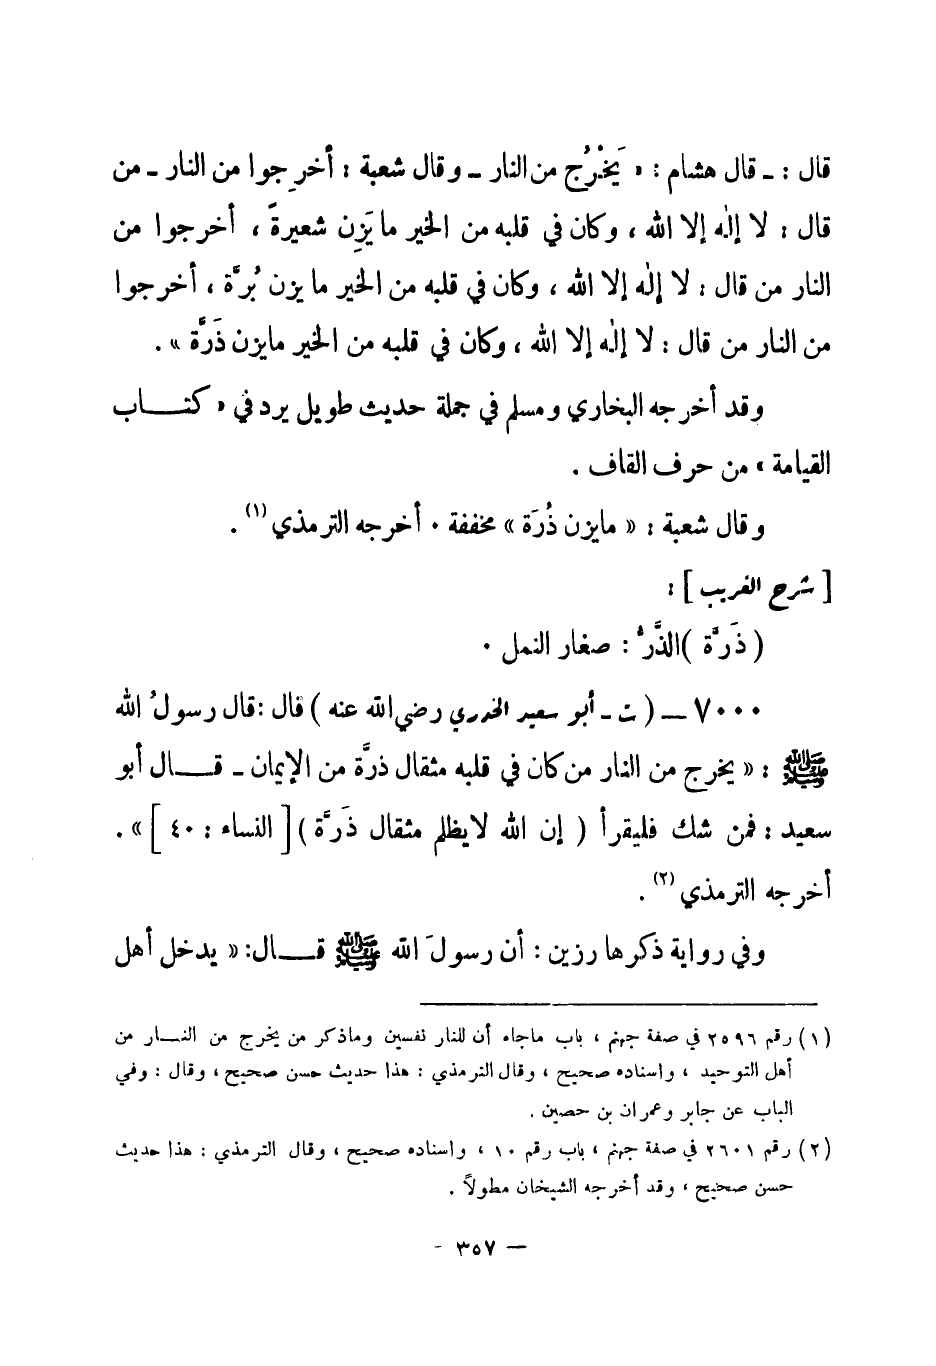 قال : ـ قال هشام : « يَخْرُج من النار ـ وقال شعبة : أخرِجوا من النار ـ من
قال : لا إلٰه إلا الله ، وكان في قلبه من الخير ما يَزِن شعيرةً ، أخرجوا من
النار من قال : لا إلٰه إلا الله ، وكان في قلبه من الخير ما يزن بُرَّة ، أخرجوا
من النار من قال : لا إلٰه إلا الله ، وكان في قلبه من الخير مايزن ذَرَّة » .
وقد أخرجه البخاري ومسلم في جملة حديث طويل يرد في « كتـــاب
القيامة » من حرف القاف .
وقال شعبة : « مايزن ذُرَة » مخففة . أخرجه الترمذي (١) .
[ شرح الغريب ] :
( ذَرَّة ) الذَّرُّ : صغار النمل .
٧٠٠٠ ـ ( ت ـ أبو سعيد الخدري رضي الله عنه ) قال : قال رسولُ الله
ﷺ : « يخرج من النار من كان في قلبه مثقال ذرَّة من الإيمان ـ قـــال أبو
سعيد : فمن شك فليقرأ ( إن الله لايظلم مثقال ذَرَّة ) [ النساء : ٤٠ ] » .
أخرجه الترمذي (٢) .
وفي رواية ذكرها رزين : أن رسولَ الله ﷺ قـــال: « يدخل أهل
(١) رقم ٢٥٩٦ في صفة جهنم ، باب ماجاء أن للنار نفسين وماذكر من يخرج من النـــار من
أهل التوحيد ، واسناده صحيح ، وقال الترمذي : هذا حديث حسن صحيح ، وقال : وفي
الباب عن جابر وعمران بن حصين .
(٢) رقم ٢٦٠١ في صفة جهنم ، باب رقم ١٠ ، واسناده صحيح ، وقال الترمذي : هذا حديث
حسن صحيح ، وقد أخرجه الشيخان مطولاً .
— ٣٥٧ -